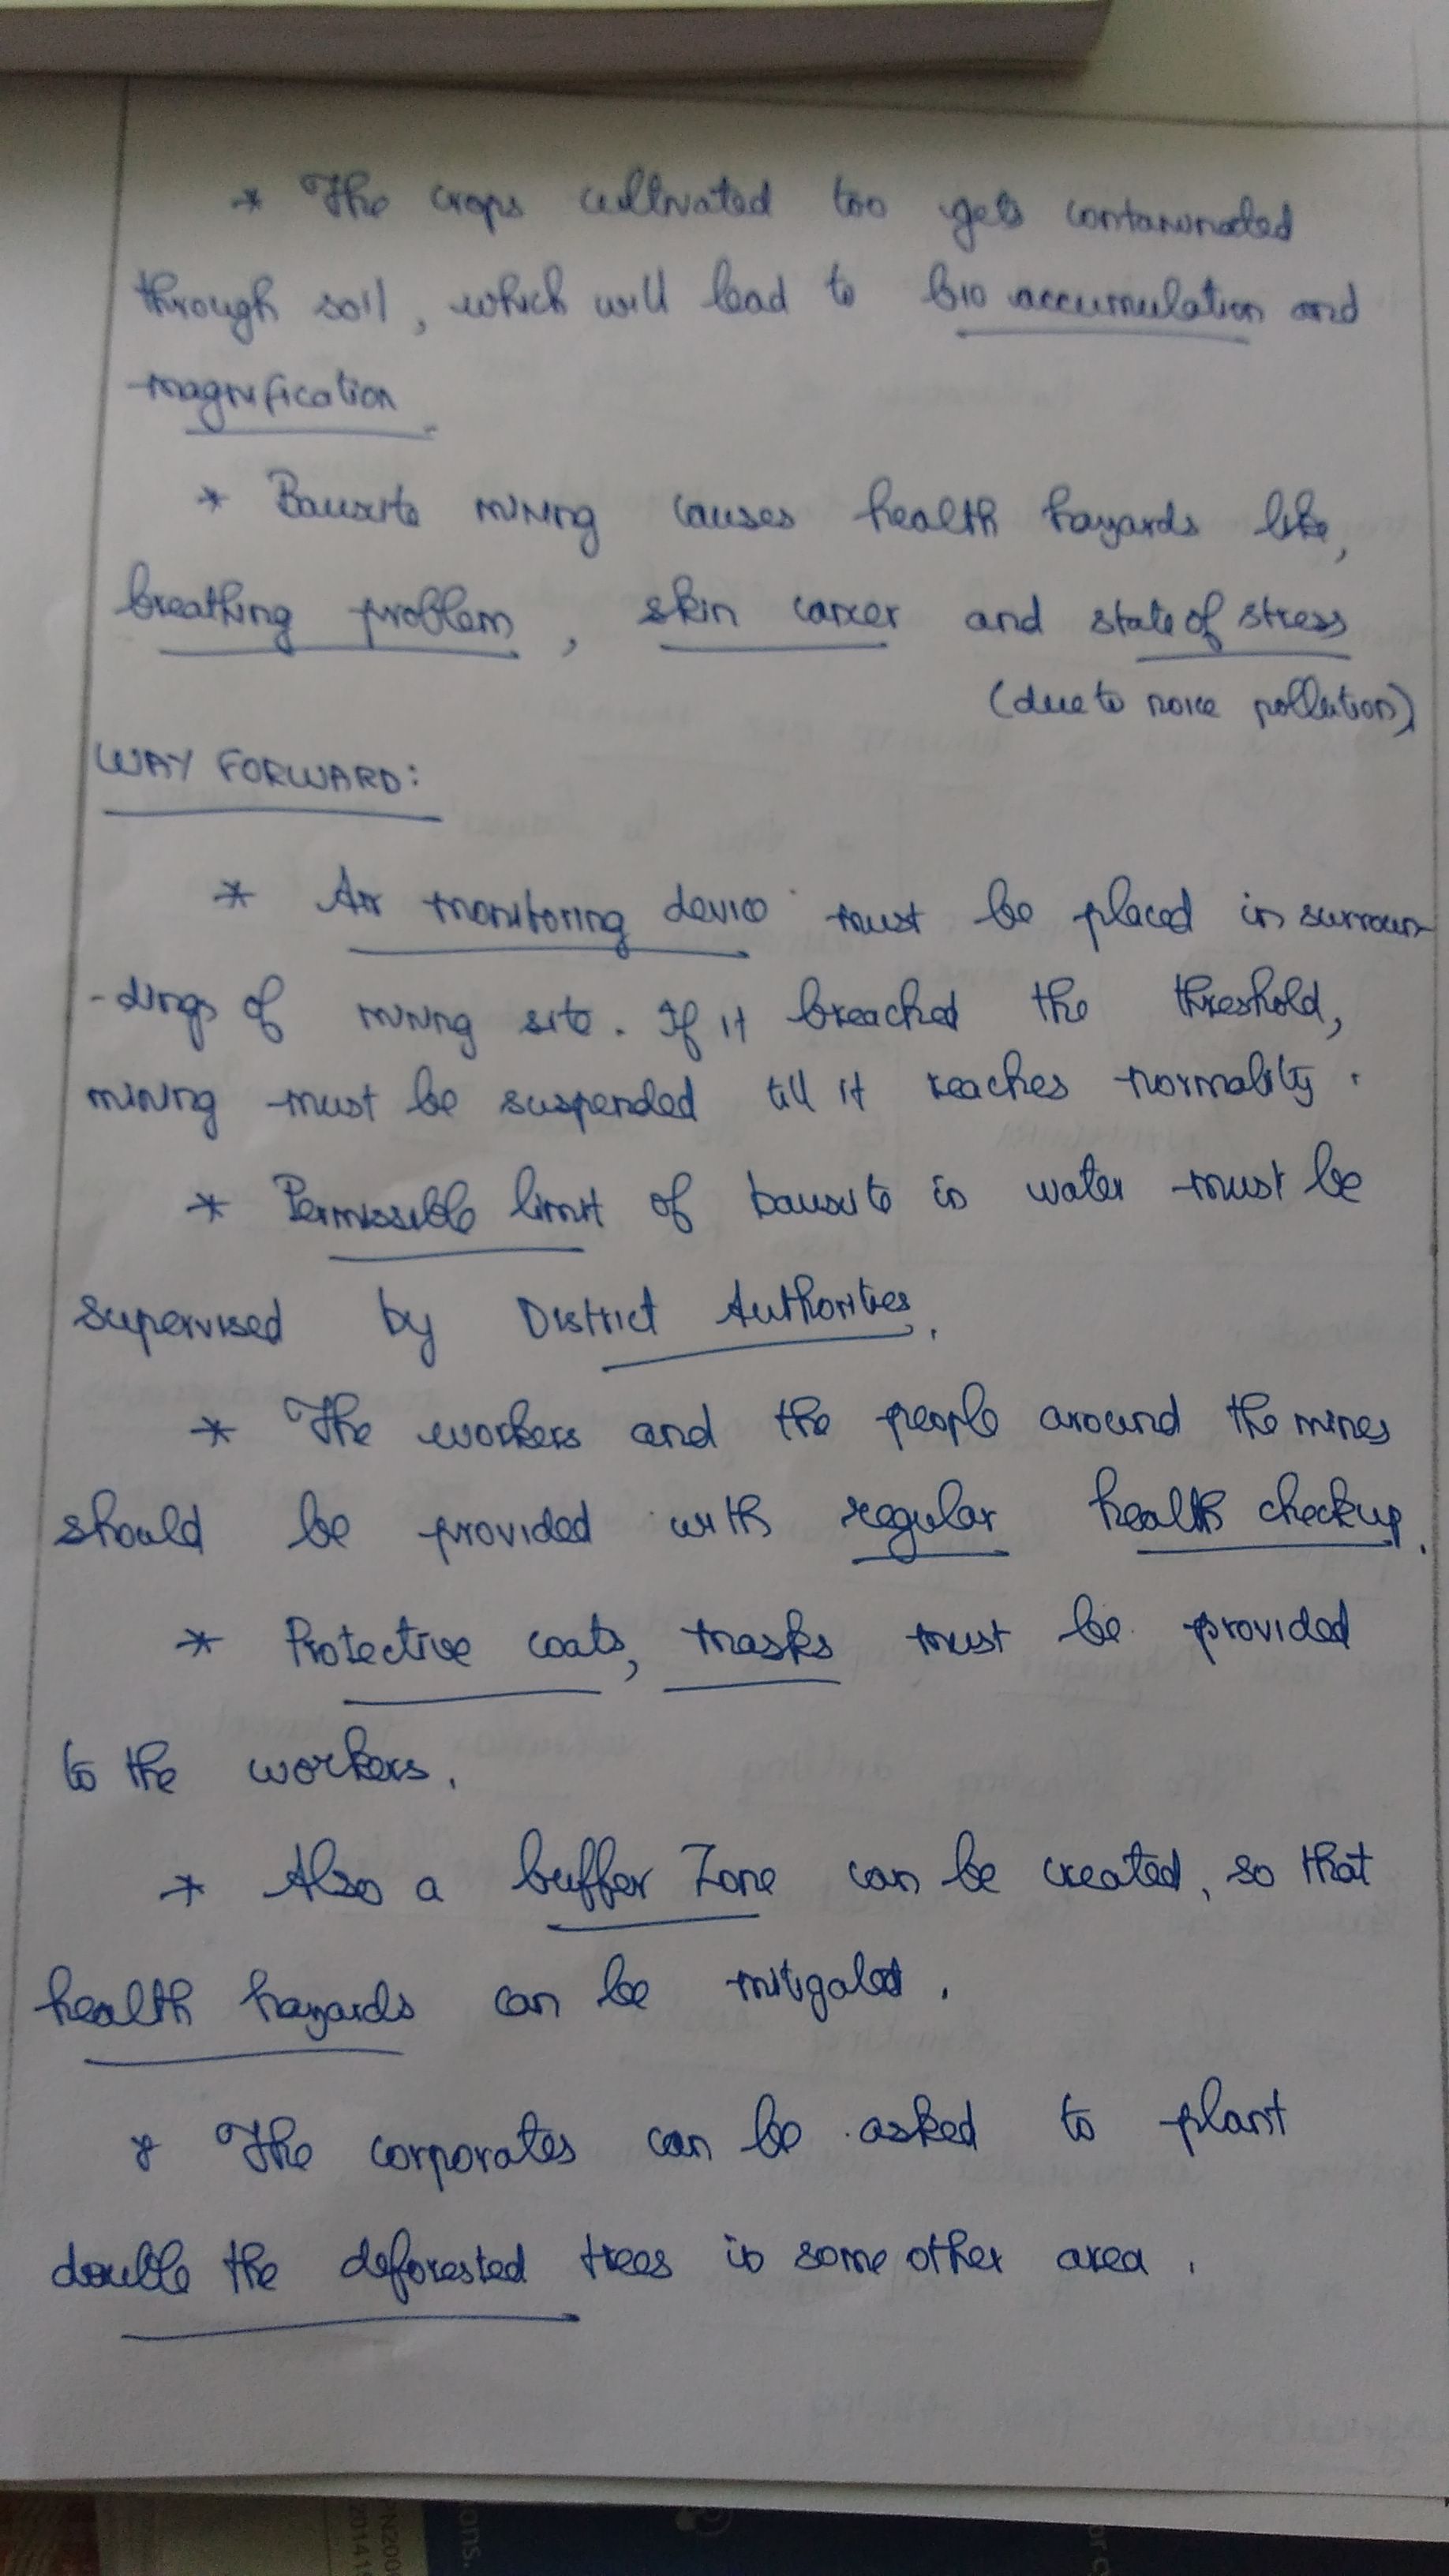 * The crops cultivated too gets contaminated
through soil, which will lead to bio accumulation and
magnification.
* Bauxite mining causes health hazards like,
breathing problem, skin cancer and state of stress
(due to noice pollution)
WAY FORWARD:
* Air monitoring device must be placed in surroun-
-dings of mining site. If it breached the threshold,
mining must be suspended till it reaches normality.
* Permissible limit of bauxite in water must be
supervised by District Authorities.
* The workers and the people around the mines
should be provided with regular health checkup.
* Protective coats, masks must be provided
to the workers.
* Also a buffer Zone can be created, so that
health hazards can be mitigated.
* The corporates can be asked to plant
double the deforested trees in some other area.
ons.